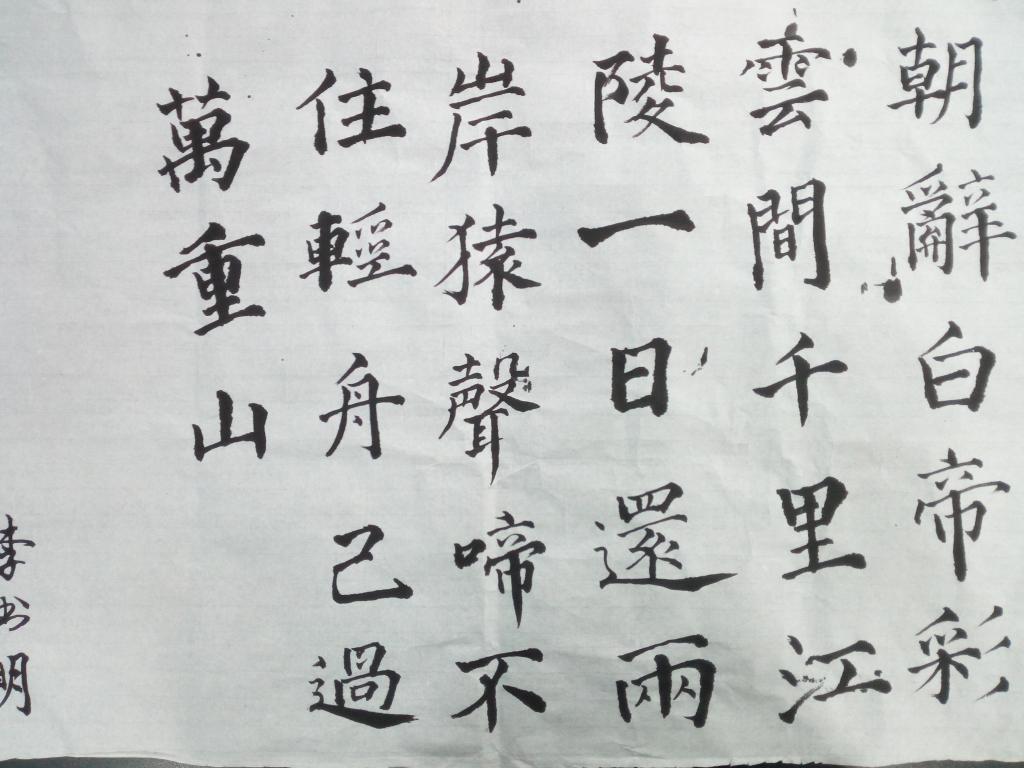 朝辭白帝彩
雲間千里江
陵一日還兩
岸猿聲啼不
住輕舟己過
萬重山
李书明